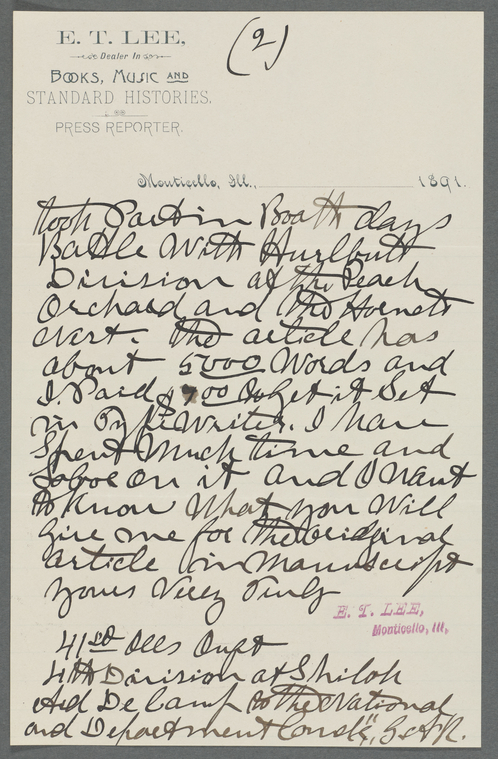 E. T. LEE,
Dealer In
BOOKS, MUSIC AND
STANDARD HISTORIES.
PRESS REPORTER.
(2)
Monticello, Ill., 1891.
took Part in Boath days
Battle With Hurlbutt
Division at the Peach
Orchard and the Hornets
Nest. The article has
about 5000 Words and
I Paid $ 00 to get it Set
in Type Writer. I have
Spent Much time and
Labor on it and I Want
to Know What you Will
Give me for the original
article in Manuscript
Yours Very Truly
E. T. LEE,
Monticello, Ill,
41st Ills
4th Division at Shiloh
Aid De Camp to the National
and Department G.A.R.